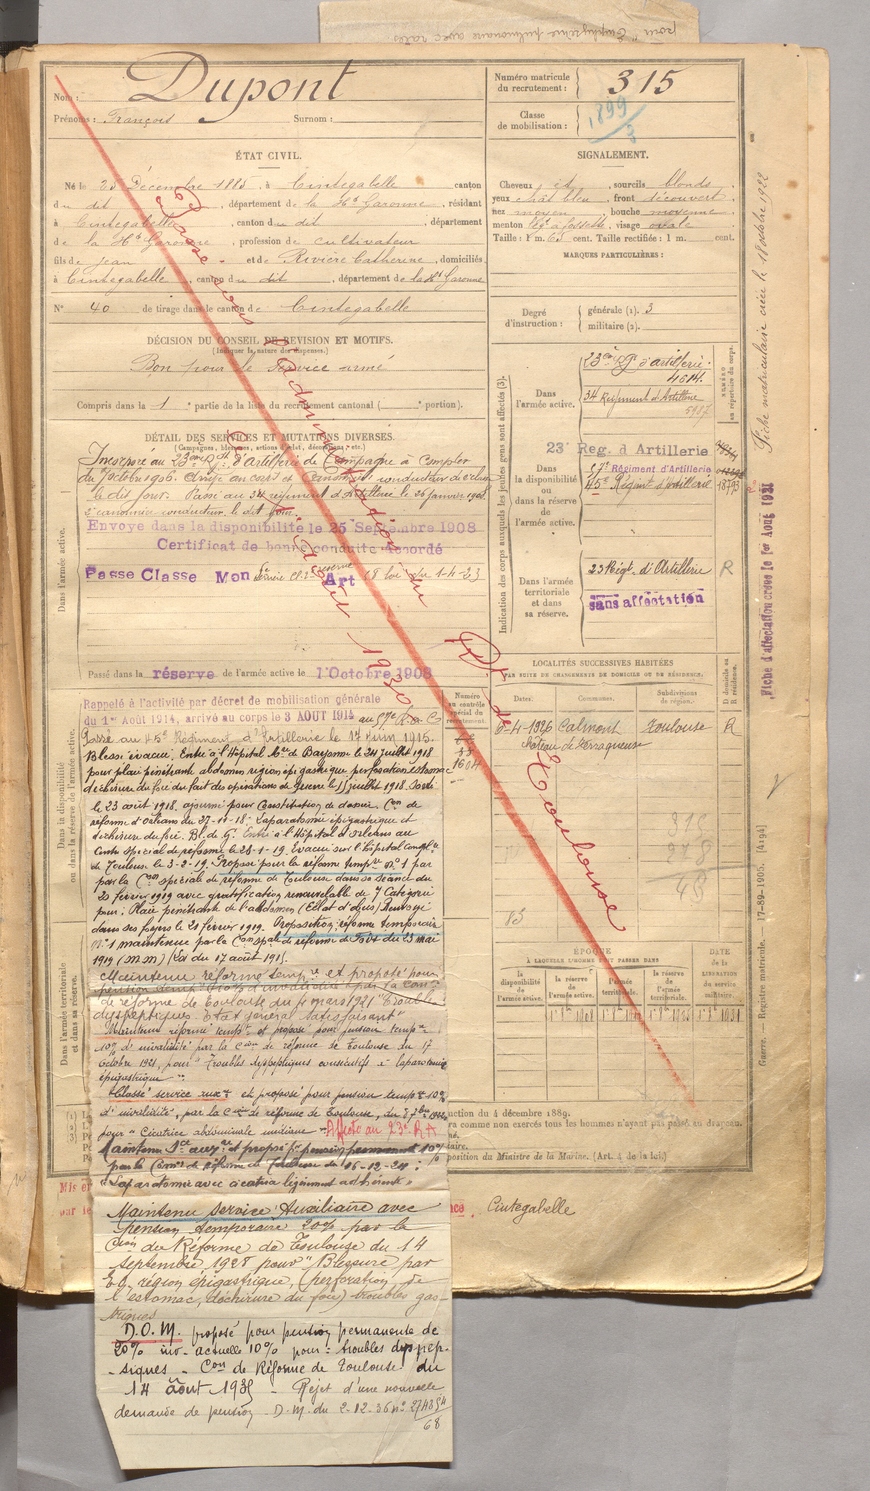 pour "Emphysème pulmonaire avec râles
Nom : Dupont
Prénoms : François Surnom :
Numéro matricule du recrutement : 315
Classe de mobilisation : 1899/3
ÉTAT CIVIL.
Né le 25 Décembre 1885, à Cintegabelle canton
du dit, département de la Hte Garonne, résidant
à Cintegabelle, canton du dit, département
de la Hte Garonne, profession de cultivateur
fils de Jean et de Rivière Catherine, domiciliés
à Cintegabelle, canton du dit, département de la Hte Garonne
N° 40 de tirage dans le canton de Cintegabelle
SIGNALEMENT.
Cheveux et sourcils blonds
yeux chât bleu, front découvert
nez moyen, bouche moyenne
menton à fossette, visage ovale
Taille : 1 m. 63 cent. Taille rectifiée : 1 m. cent.
MARQUES PARTICULIÈRES :
Degré d'instruction : générale (1). 3
militaire (2).
DÉCISION DU CONSEIL DE REVISION ET MOTIFS.
(Indiquer la nature des dispenses.)
Bon pour le service armé
Compris dans la 1 e partie de la liste du recrutement cantonal ( portion).
DÉTAIL DES SERVICES ET MUTATIONS DIVERSES.
(Campagnes, blessures, actions d'éclat, décorations, etc.)
Dans l'armée active.
Incorporé au 23ème Rgt d'Artillerie de Campagne à compter
du 7 octobre 1906. Arrivé au corps et canonnier conducteur
le dit jour. Passé au 34 régiment d'Artillerie le 26 janvier
2e canonnier conducteur le dit jour.
Envoyé dans la disponibilité le 25 Septembre 1908
Certificat de bonne conduite Accordé
Passé Classe Mon réserve Art 58 loi du 1-4-23
Passé dans la réserve de l'armée active le 1 Octobre 1908
Indication des corps auxquels les jeunes gens sont affectés (3).
NUMÉRO au répertoire du corps.
Dans l'armée active. 23e Rgt d'artillerie
34 Régiment d'Artillerie 5917
Dans la disponibilité ou dans la réserve de l'armée active.
23e Rég. d'Artillerie
57e Régiment d'Artillerie
45e Régiment d'Artillerie 18793
Dans l'armée territoriale et dans sa réserve.
23 Régt. d'Artillerie R
sans affectation
LOCALITÉS SUCCESSIVES HABITÉES
PAR SUITE DE CHANGEMENTS DE DOMICILE OU DE RÉSIDENCE.
Dates. Communes. Subdivisions de région. D domicile ou R résidence.
5-4-1926 Calmont Toulouse R
château de Terraqueuse
Dans la disponibilité ou dans la réserve de l'armée active.
Rappelé à l'activité par décret de mobilisation générale
du 1er Août 1914, arrivé au corps le 3 AOUT 1914 au 57e
Passé au 45e Régiment d'Artillerie le 17 juin 1915.
Blessé évacué. Entré à l'Hôpital de Bayonne le 24 juillet 1918
pour plaie pénétrante abdomen région épigastrique perforation estomac
déchirure du foie du fait des opérations de guerre le 15 juillet 1918. Sorti
le 23 août 1918. ajourné pour Constitution de dossier Con de
réforme d'Orléans du 27-11-18. Laparatomie épigastrique et
déchirure du foie. Bl. de G. Entré à l'Hôpital d'Orléans au
Centre spécial de réforme le 28-1-19. Évacué sur l'hôpital compl.re
de Toulouse le 3-2-19. Proposé pour la réforme tempre n°1 par
par la Con spéciale de réforme de Toulouse dans sa séance du
20 février 1919 avec gratification renouvelable de 7 Catégorie
pour : Plaie pénétrante de l'abdomen (Éclat d'obus) Renvoyé
dans ses foyers le 21 février 1919. Proposition réforme temporaire
n° 1 maintenue par la Con spale de réforme de du 23 mai
1919 (MM) du 17 août 1915.
Maintenu réforme tempre et proposé pour
pension tempre 10% d'invalidité par la Con
de réforme de Toulouse du 4 mars 1921 "Troubles
dyspeptiques. État général satisfaisant"
Maintenu réformé tempre et proposé pour pension tempre
10% d'invalidité par la Con de réforme de Toulouse du 17
Octobre 1921, pour "Troubles dyspeptiques consécutifs à laparotomie
épigastrique"
Classé service auxre et proposé pour pension tempre 10%
d'invalidité, par la Con de réforme de Toulouse, du 7 7bre 1922
pour "Cicatrice abdominale médiane" Affecté au 23e R A
Maintenu Sce auxre et proposé pr pension permanente 10%
par la Con de réforme de Toulouse du 16-12-24 :
"Laparatomie avec cicatrice légèrement adhérente"
Maintenu Service Auxiliaire avec
pension temporaire 20% par la
Con du Réforme de Toulouse du 14
septembre 1928 pour "Blessure par
E.O. région épigastrique, (perforation de
l'estomac, déchirure du foie) troubles gas-
triques
D.O.M. proposé pour pension permanente de
20% inv. actuelle 10% pour : troubles dyspep-
-siques - Con de Réforme de Toulouse du
14 août 1935 - Rejet d'une nouvelle
demande de pension - D.M. du 2-12-36
68
Numéro au contrôle spécial du recrutement.
1604
315
278
43
83
ÉPOQUE
À LAQUELLE L'HOMME DOIT PASSER DANS
la disponibilité de l'armée active. la réserve de l'armée active. l'armée territoriale. la réserve de l'armée territoriale. DATE de la LIBÉRATION du service militaire.
Dans l'armée territoriale et dans sa réserve.
du 4 décembre 1889.
comme non exercés tous les hommes n'ayant pas passé au drapeau.
disposition du Ministre de la Marine. (Art. 4 de la loi.)
Cintegabelle
Passé sous l'administration du
Rt de Toulouse
Août 1930
Fiche matriculaire créée le 18 octobre 1922
Fiche d'affectation créée le 1er Août 1931
Guerre. — Registre matricule. — 17-89-1905. [4194]